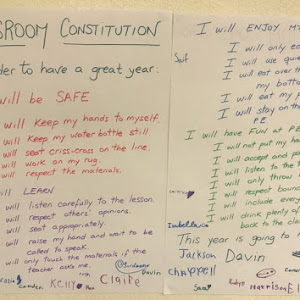 SROOM CONSTITUTION
der to have a great year:
will be SAFE
will keep my hands to myself.
will keep my water bottle still.
will seat criss-cross on the line.
will work on my rug.
will respect the materials.
will LEARN
will listen carefully to the lesson.
will respect others' opinions.
will seat appropriately.
will raise my hand and wait to be
called to speak.
will only touch the materials if the
teacher asks me.
Davin
Camden
Kelly
Claire
I will ENJOY M
Saif
I will only ea
I will use qui
I will eat over th
my botto
I will eat my f
I will stay on th
PE
I will have FUN at P
I will not put my ha
I will accept and p
I will listen to the
I will only throw
I will respect boun
I will include every
I will drink plenty
back to the cla
Isabella
This year is going to
Jackson
Davin
Chappell
Sara
Robyn
Harrison